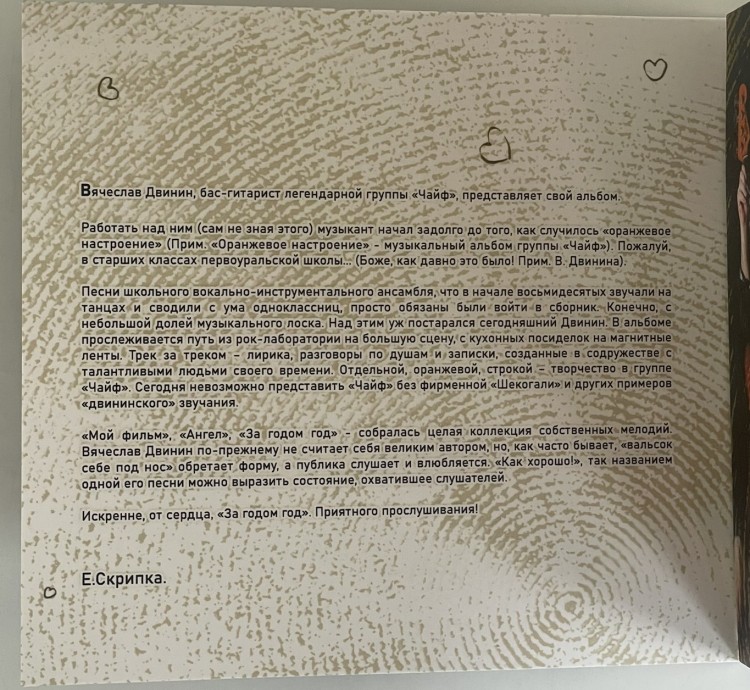 Вячеслав Двинин, бас-гитарист легендарной группы «Чайф», представляет свой альбом.
Работать над ним (сам не зная этого) музыкант начал задолго до того, как случилось «оранжевое
настроение» (Прим. «Оранжевое настроение» - музыкальный альбом группы «Чайф»). Пожалуй,
в старших классах первоуральской школы... (Боже, как давно это было! Прим. В. Двинина).
Песни школьного вокально-инструментального ансамбля, что в начале восьмидесятых звучали на
танцах и сводили с ума одноклассниц, просто обязаны были войти в сборник. Конечно, с
небольшой долей музыкального лоска. Над этим уж постарался сегодняшний Двинин. В альбоме
прослеживается путь из рок-лаборатории на большую сцену, с кухонных посиделок на магнитные
ленты. Трек за треком – лирика, разговоры по душам и записки, созданные в содружестве с
талантливыми людьми своего времени. Отдельной, оранжевой, строкой – творчество в группе
«Чайф». Сегодня невозможно представить «Чайф» без фирменной «Шекогали» и других примеров
«двининского» звучания.
«Мой фильм», «Ангел», «За годом год» - собралась целая коллекция собственных мелодий.
Вячеслав Двинин по-прежнему не считает себя великим автором, но, как часто бывает, «вальсок
себе под нос» обретает форму, а публика слушает и влюбляется. «Как хорошо!», так названием
одной его песни можно выразить состояние, охватившее слушателей.
Искренне, от сердца, «За годом год». Приятного прослушивания!
Е.Скрипка.